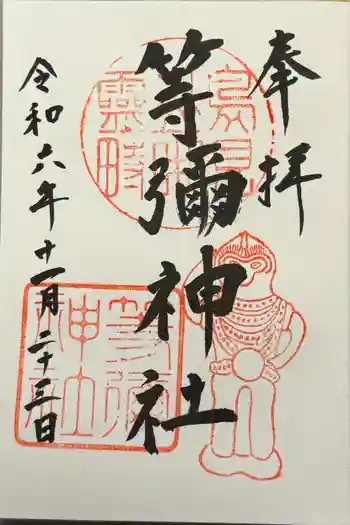 奉拝
等彌神社
令和六年十一月二十三日
等彌神社